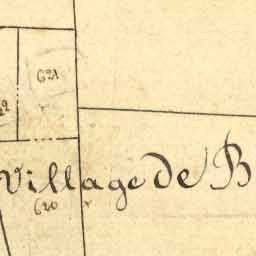 621
Village de B
620